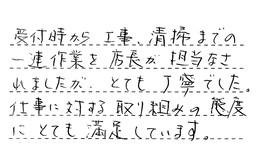 受付時から工事、清掃までの
一連作業を店長が担当なさ
れましたが、とても丁寧でした。
仕事に対する取り組みの態度
にとても満足しています。